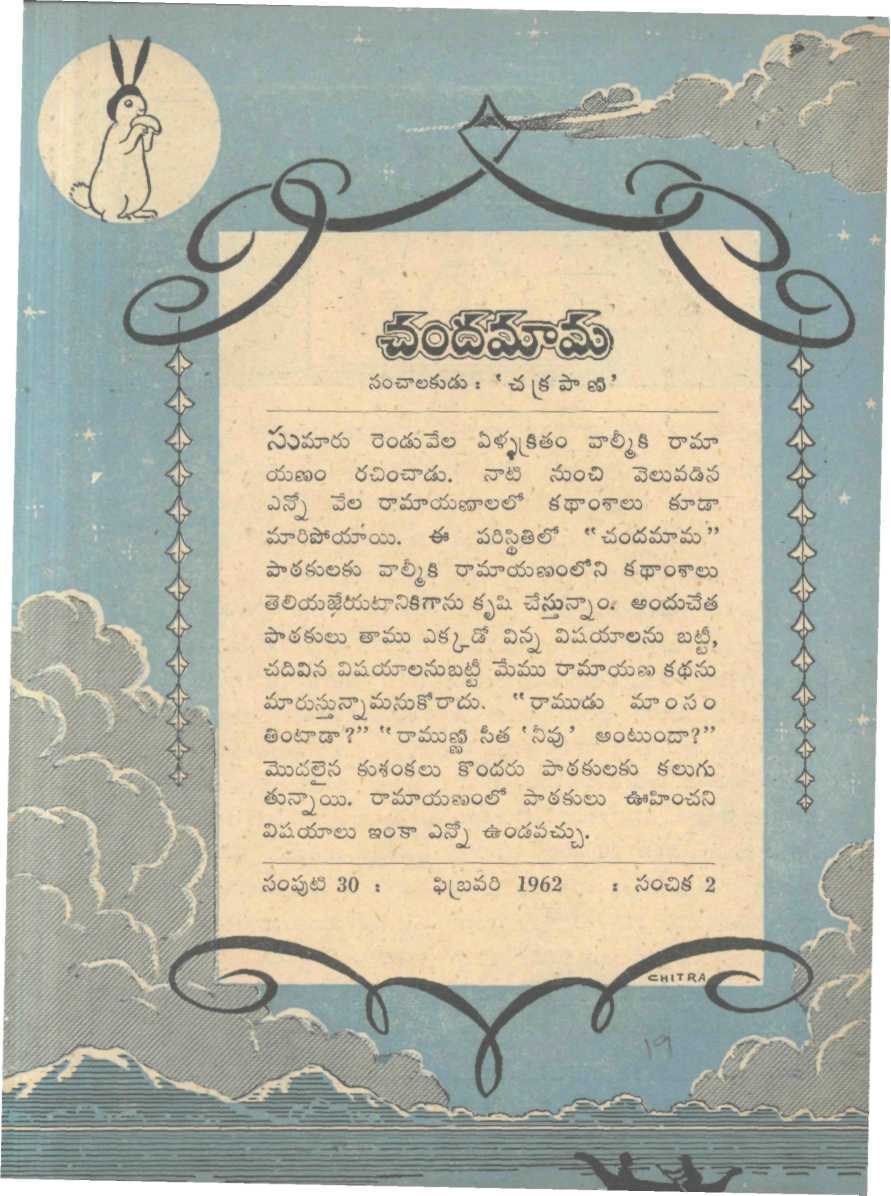 చందమామ
సంచాలకుడు : ‘చక్రపాణి’
సుమారు రెండువేల ఏళ్ళక్రితం వాల్మీకి రామా
యణం రచించాడు. నాటి నుంచి వెలువడిన
ఎన్నో వేల రామాయణాలలో కథాంశాలు కూడా
మారిపోయాయి. ఈ పరిస్థితిలో “చందమామ”
పాఠకులకు వాల్మీకి రామాయణంలోని కథాంశాలు
తెలియజేయటానికిగాను కృషి చేస్తున్నాం. అందుచేత
పాఠకులు తాము ఎక్కడో విన్న విషయాలను బట్టీ,
చదివిన విషయాలనుబట్టీ మేము రామాయణ కథను
మారుస్తున్నామనుకోరాదు. “రాముడు మాంసం
తింటాడా?” “రాముణ్ణి సీత ‘నీవు’ అంటుందా?”
మొదలైన కుశంకలు కొందరు పాఠకులకు కలుగు
తున్నాయి. రామాయణంలో పాఠకులు ఊహించని
విషయాలు ఇంకా ఎన్నో ఉండవచ్చు.
సంపుటి 30 : ఫిబ్రవరి 1962 : సంచిక 2
CHITRA
19